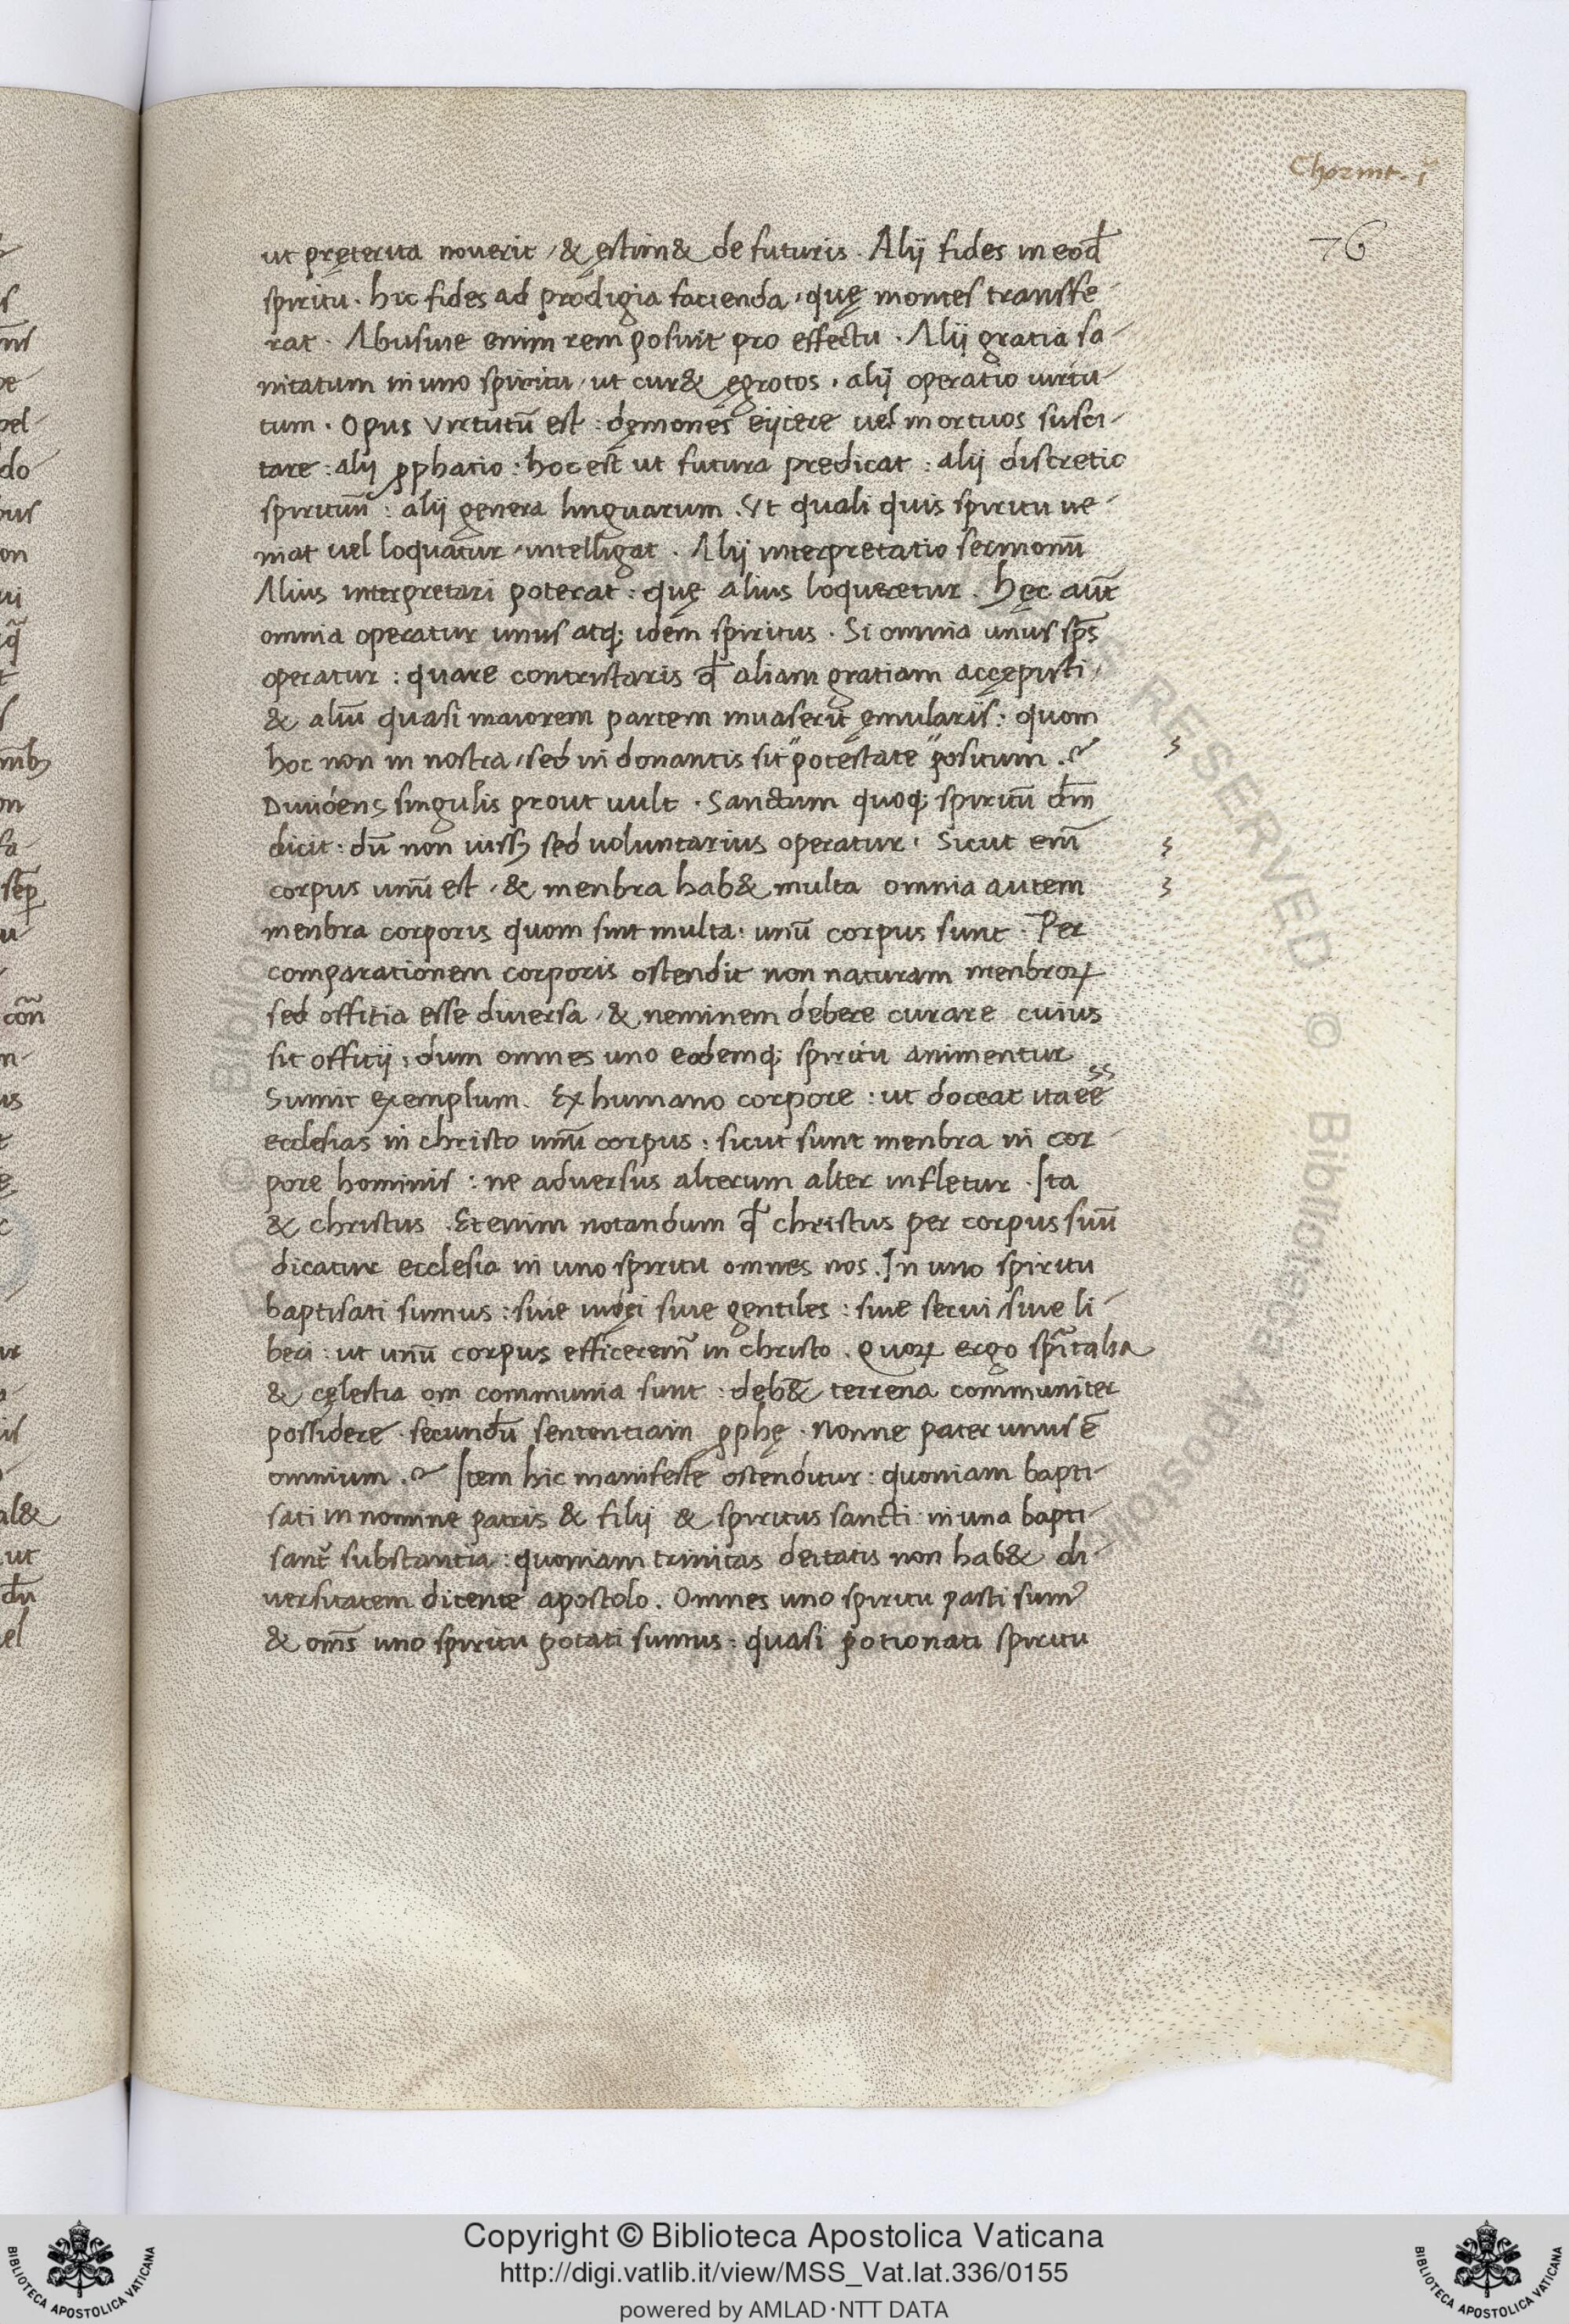 Chorint. i
76
ut pręterita nouerit / & ęstim& de futuris . Alij fides in eod̄
spiritu . hic fides ad prodigia facienda , quę montes transfe-
rat . Abusiue enim rem posuit pro effectu . Alij gratia sa-
nitatum in uno spiritu / ut cur& ęgrotos . alij operatio uirtu-
tum . Opus virtutū est : dęmones eijcere uel mortuos susci-
tare : alij ꝓphatio : hoc est ut futura predicat : alij discretio
spirituū : alij genera linguarum . Ut quali quis spiritu ue-
niat uel loquatur / intelligat . Alij interpretatio sermonū
Alius interpretari poterat : quę alius loqueretur . hęc aut̄
omnia operatur unus atq; idem spiritus . Si omnia unus sp̄s
operatur : quare contristaris qđ aliam gratiam accępisti /
& aliū quasi maiorem partem inuaserit ęmulariis : quom
hoc non in nostra / sed in donantis sit " potestate " positum . ?
Diuidens singulis prout uult . Sanctum quoq; spiritū dn̄m
dicit : dū non iussꝫ sed uoluntarius operatur . Sicut enī
corpus unū est / & menbra hab& multa omnia autem
menbra corporis quom sint multa : unū corpus sunt . Per
comparationem corporis ostendit non naturam menbroꝝ
sed offitia esse diuersa / & neminem debere curare cuius
sit offitij : dum omnes uno eodemq; spiritu animentur
Sumit exemplum . Ex humano corpore : ut doceat ita eē
ss
ecclesias in christo unū corpus : sicut sunt menbra in cor-
pore hominis : ne aduersus alterum alter infletur . Ita
& christus . Etenim notandum qđ christus per corpus suū
dicatur ecclesia in uno spiritu omnes nos . In uno spiritu
baptisati sumus : siue iudęi siue gentiles : siue serui siue li-
beri : ut unū corpus efficeremr̄ in christo . Quoꝝ ergo spūitalia
& cęlestia om̄ communia sunt : deb&̄ terrena communiter
possidere . secundū sententiam ꝓphę . Nonne pater unus ē
omnium . ? Item hic manifeste ostenditur : quoniam bapti-
sati in nomine patris & filij & spiritus sancti in una bapti-
sant̄ substantia : quoniam trinitas deitatis non hab& di-
uersitatem dicente apostolo . Omnes uno spiritu pasti sumꝰ
& om̄s uno spiritu potati sumus : quasi potionati spiritu
Copyright © Biblioteca Apostolica Vaticana
http://digi.vatlib.it/view/MSS_Vat.lat.336/0155
powered by AMLAD·NTT DATA